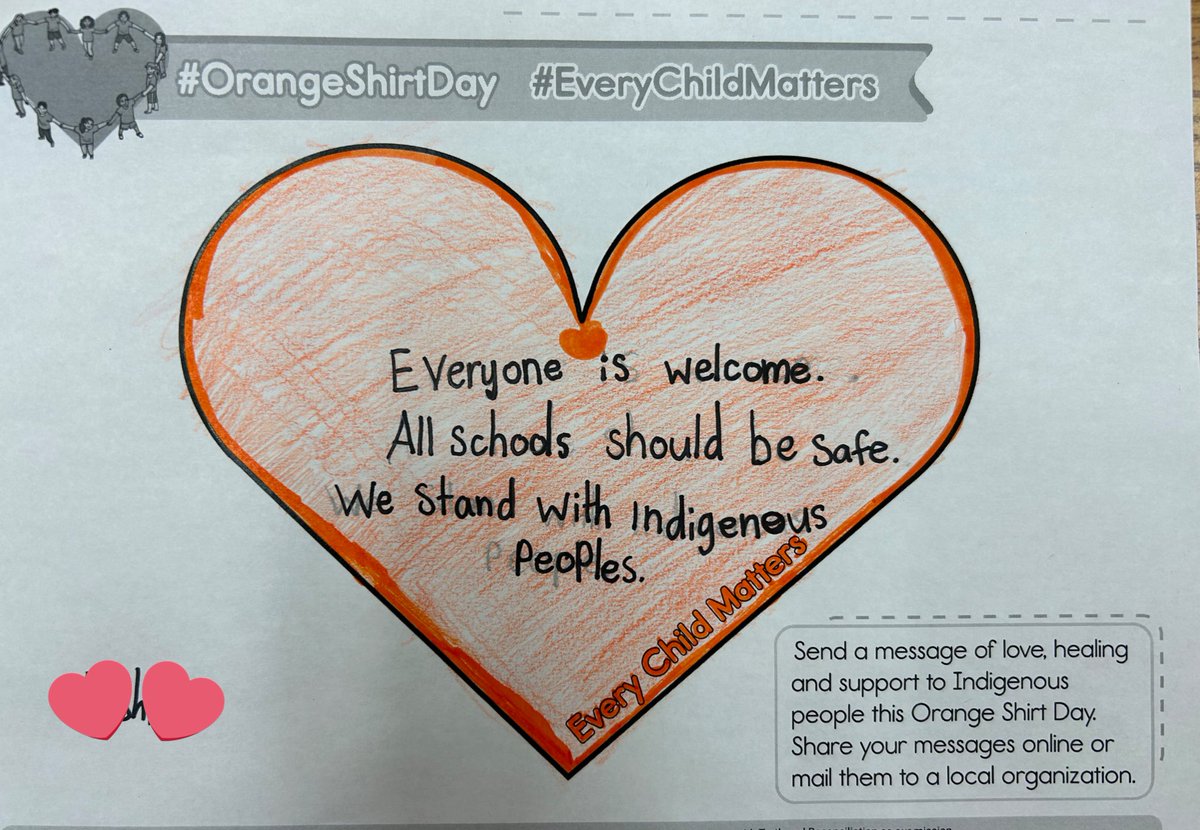 #OrangeShirtDay #EveryChildMatters
Everyone is welcome.
All schools should be safe.
We stand with Indigenous
Peoples.
Every Child Matters
Send a message of love, healing
and support to Indigenous
people this Orange Shirt Day.
Share your messages online or
mail them to a local organization.